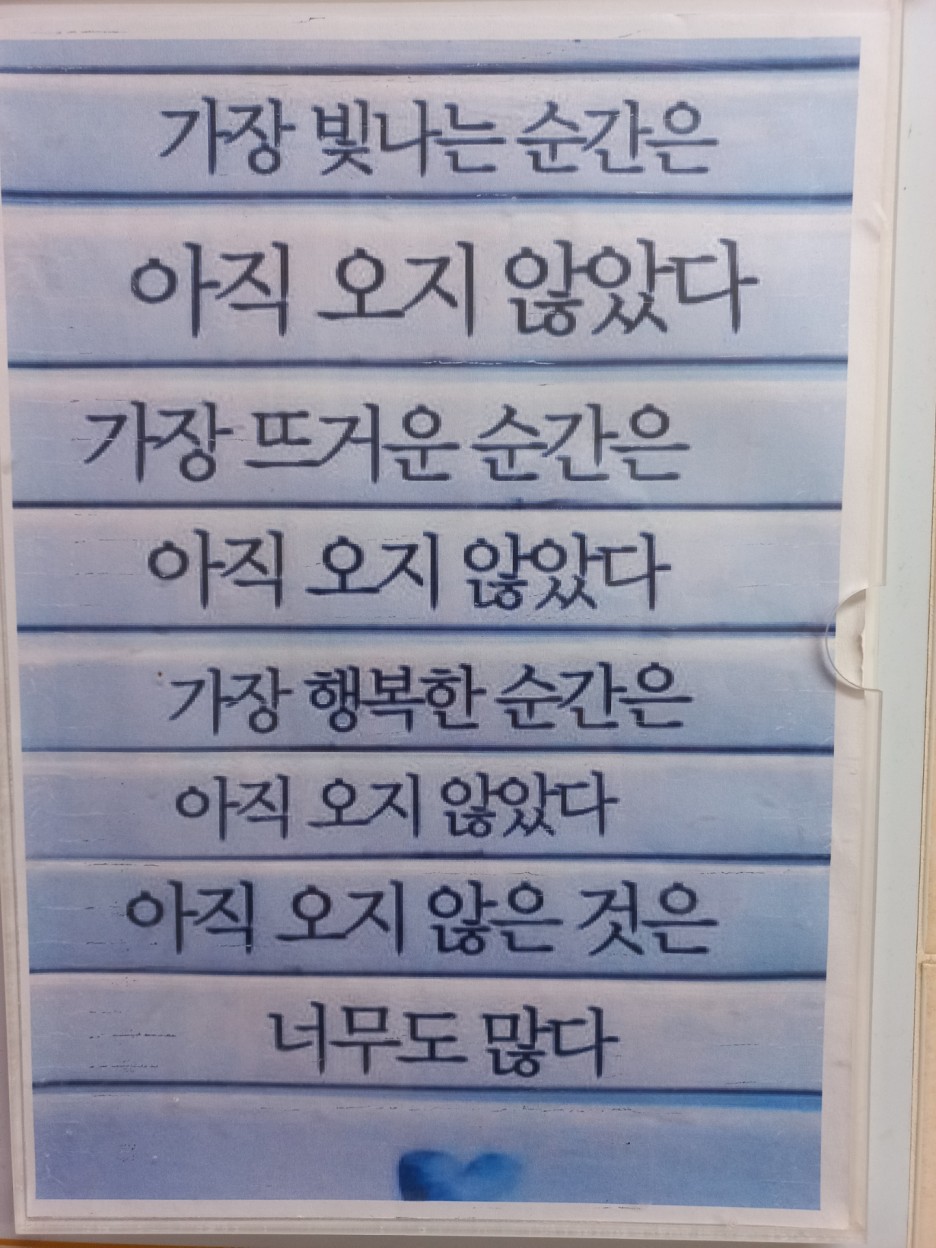 가장 빛나는 순간은
아직 오지 않았다
가장 뜨거운 순간은
아직 오지 않았다
가장 행복한 순간은
아직 오지 않았다
아직 오지 않은 것은
너무도 많다